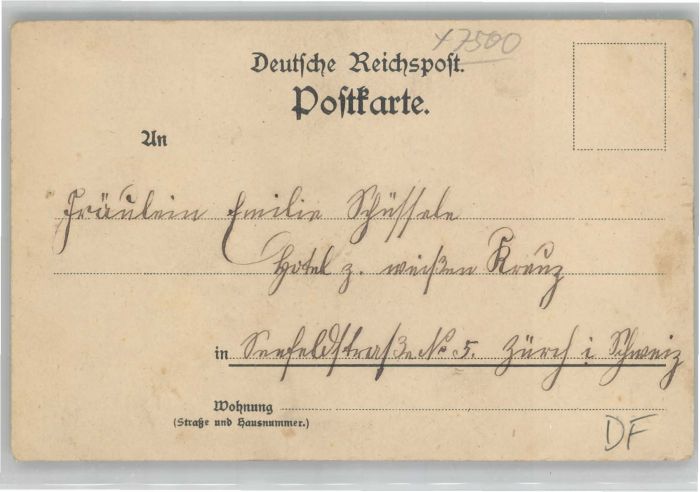 x 7500
Deutsche Reichspost.
Postkarte.
An
Fräulein Emilie Schüssele
Hotel z. weißen Kreuz
in Seefeldstraße No 5. Zürch i Schweiz
Wohnung
(Straße und Hausnummer.)
DF